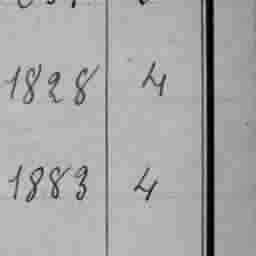 1828 4
1883 4